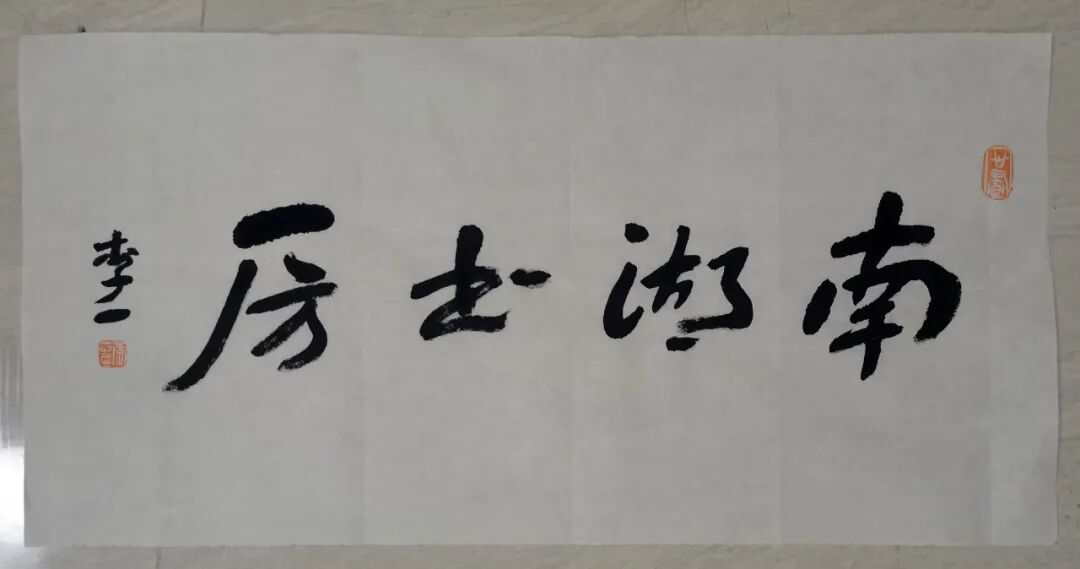 南湖書房
李一